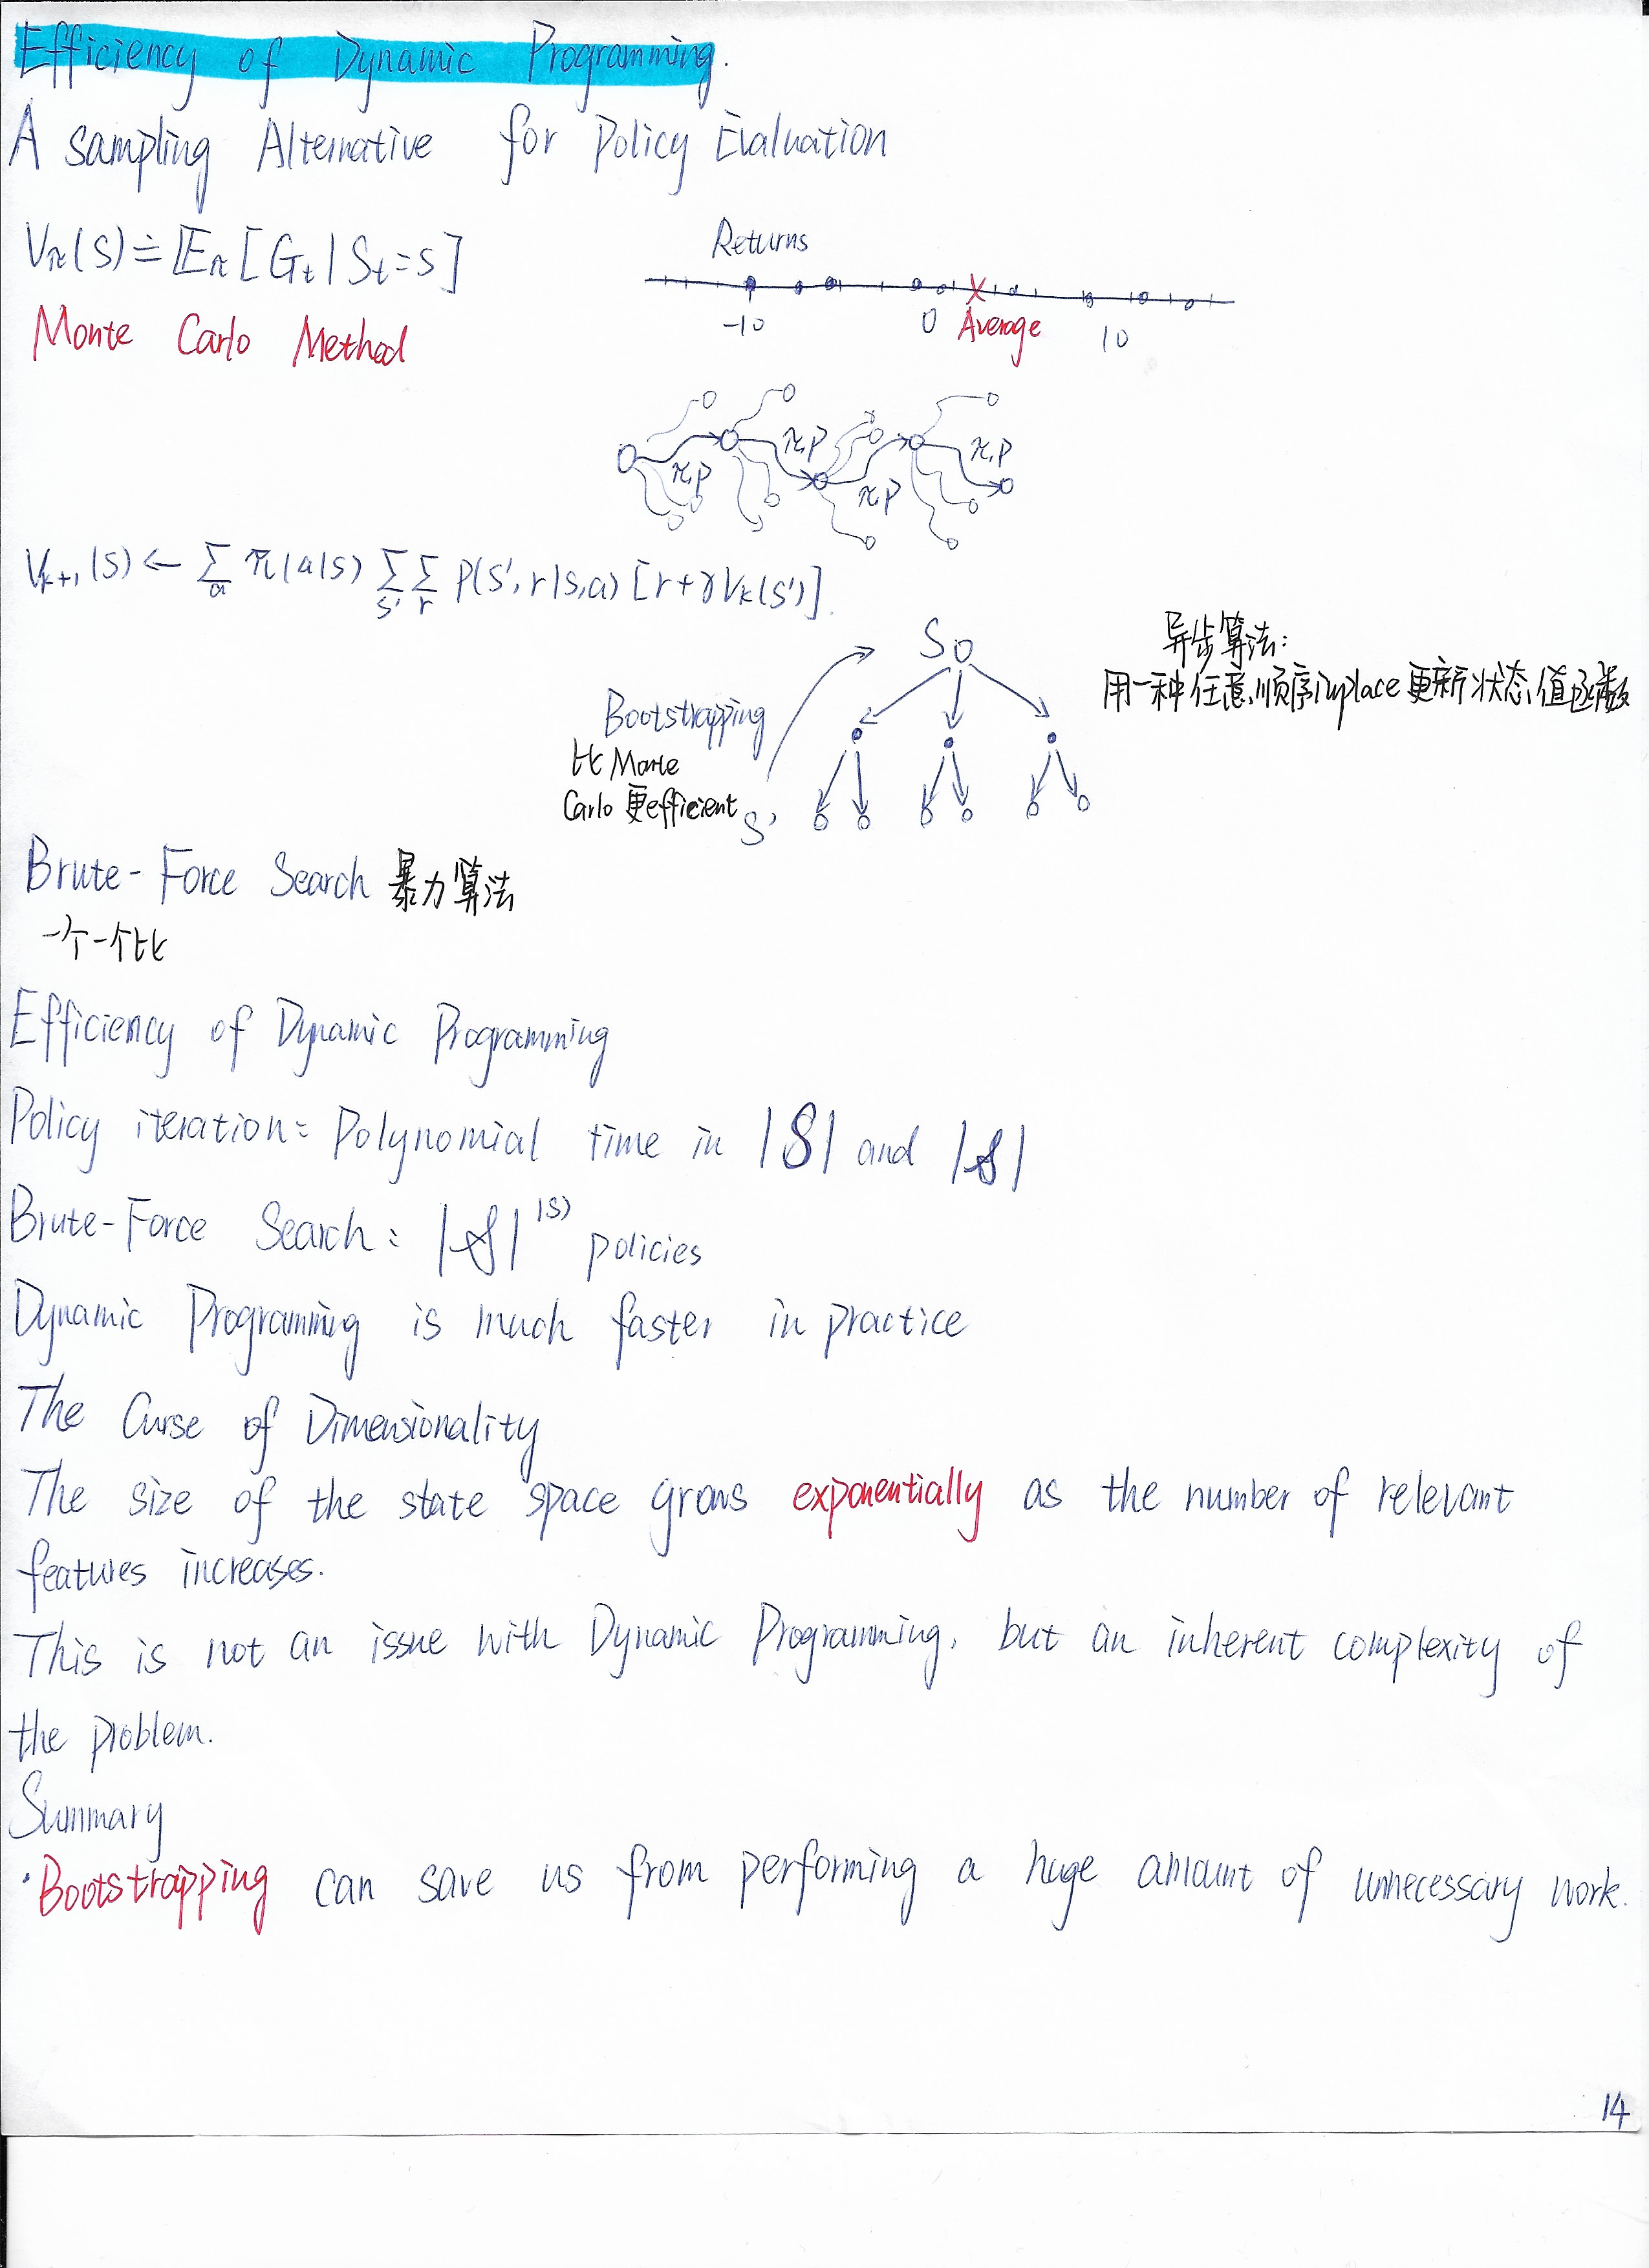 Efficiency of Dynamic Programming.
A sampling Alternative for Policy Evaluation
Vπ(s) ≐ 𝔼π[Gt | St=s]
Returns
-10 0 Average 10
Monte Carlo Method
π,p π,p
π,p π,p
Vk+1(s) ← Σa π(a|s) Σs' Σr p(s', r|s,a) [r+γVk(s')].
S
异步算法:
用一种任意顺序inplace更新状态值函数
Bootstrapping
比 Monte
Carlo 更efficient
S'
Brute-Force Search 暴力算法
一个一个比
Efficiency of Dynamic Programming
Policy iteration: Polynomial time in |𝒮| and |𝒜|
Brute-Force Search: |𝒜|^|S| policies
Dynamic Programming is much faster in practice
The Curse of Dimensionality
The size of the state space grows exponentially as the number of relevant
features increases.
This is not an issue with Dynamic Programming, but an inherent complexity of
the problem.
Summary
·Bootstrapping can save us from performing a huge amount of unnecessary work.
14